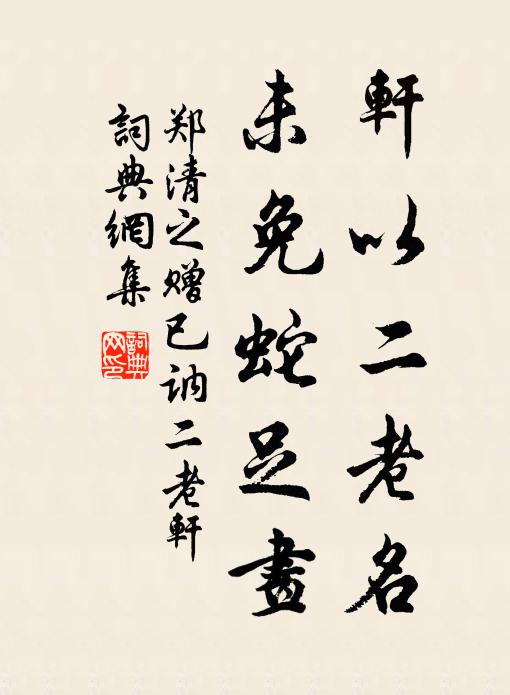 軒以二老名
未免蛇足畫
郑清之赠已讷二老軒
詞典網集
詞典
网印